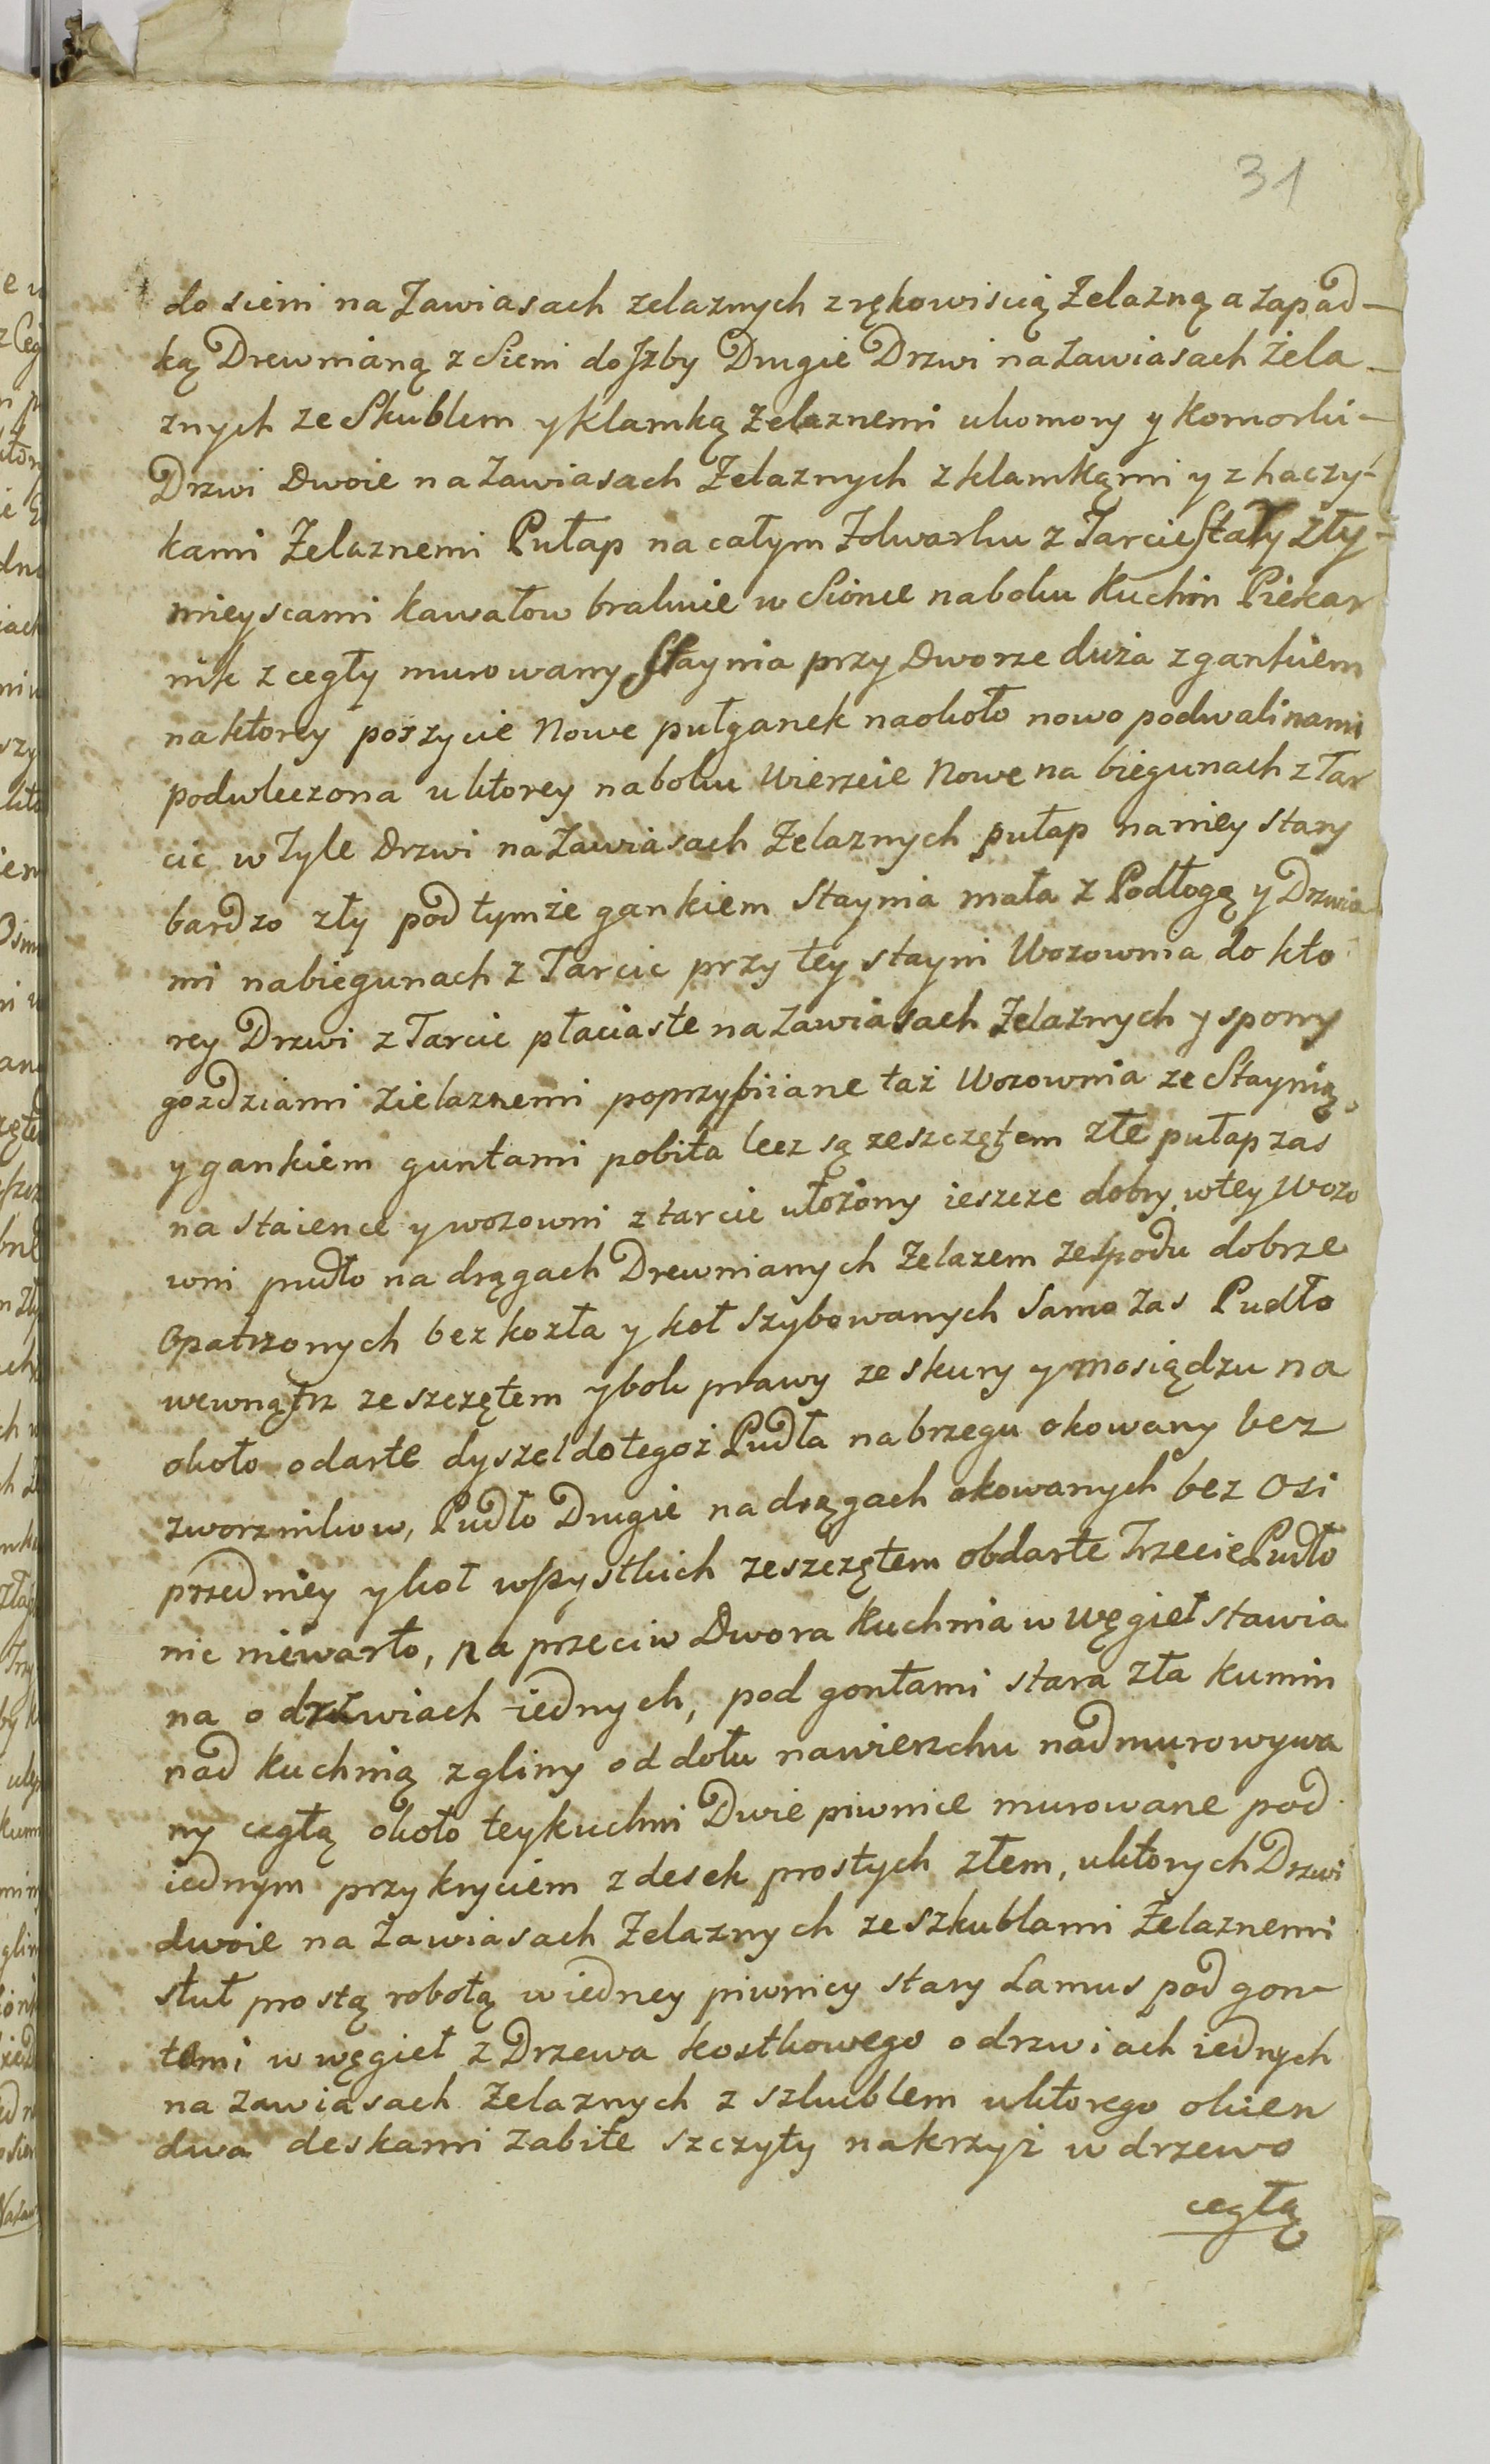 31
do sieni na Zawiasach zelaznych z rękowiscią Żelazną a zapad-
ką Drewnianą z Sieni do Jzby Drugie Drzwi na Zawiasach żela-
znych ze Skublem y klamką Żelaznemi u komory y komorki-
Drzwi Dwoie na Zawiasach Żelaznych z klamkąmi y z haczy-
kami Żelaznemi Pułap na całym Folwarku z Tarcic Stały zły-
mieyscami kawałow brakuie w Sionce na boku Kuchni Piekar
nik z cegły murowany, Staynia przy Dworze duża z gankiem
na ktorey poszycie Nowe puł ganek naokoło nowo podwalinami
podwleczona u ktorey na boku Wierzeie Nowe na biegunach z Tar
cic w Tyle Drzwi na Zawiasach Żelaznych pułap na niey stary
bardzo zły pod tymże gankiem Staynia mała z Podłogą y Drzwia
mi na biegunach z Tarcic przy tey stayni Wozownia do kto
rey Drzwi z Tarcic płaciaste na Zawiasach Żelaznych y spony
gozdziami Zielaznemi poprzybiiane taż Wozownia ze Staynią
y gankiem guntami pobita lecz są zeszczętem złe pułap zas
na staience y wozowni z tarcic ułożony ieszcze dobry, w tey Wozo
wni pudło na drągach Drewnianych Żelazem zespodu dobrze
Opatrzonych bez kozła y koł szybowanych Samo zas Pudło
wewnątrz ze szczętem y bok prawy ze skury y mosiądzu na
około odarte dyszel do tegoż Pudła na brzegu okowany bez
zworznikow, Pudło Drugie na drągach okowanych bez Osi
przedniey y koł wszystkich zeszczętem obdarte Trzecie Pudło
nic niewarto, na przeciw Dwora Kuchnia w Węgieł stawia
na o drzwiach iednych, pod gontami stara zła kumin
nad kuchnią z gliny od dołu na wierzchu nadmurowywa
ny cegłą około tey kuchni Dwie piwnice murowane pod
iednym przykryciem z desek prostych złem, u ktorych Drzwi
dwoie na Zawiasach Żelaznych ze szkublami Żelaznemi
stuł prostą robotą w iedney piwnicy stary Lamus pod gon-
tami w węgieł z Drzewa kostkowego o drzwiach iednych
na zawiasach Żelaznych z szkublem u ktorego okien
dwa deskami zabite szczyty na krzyż w drzewo
cegłą